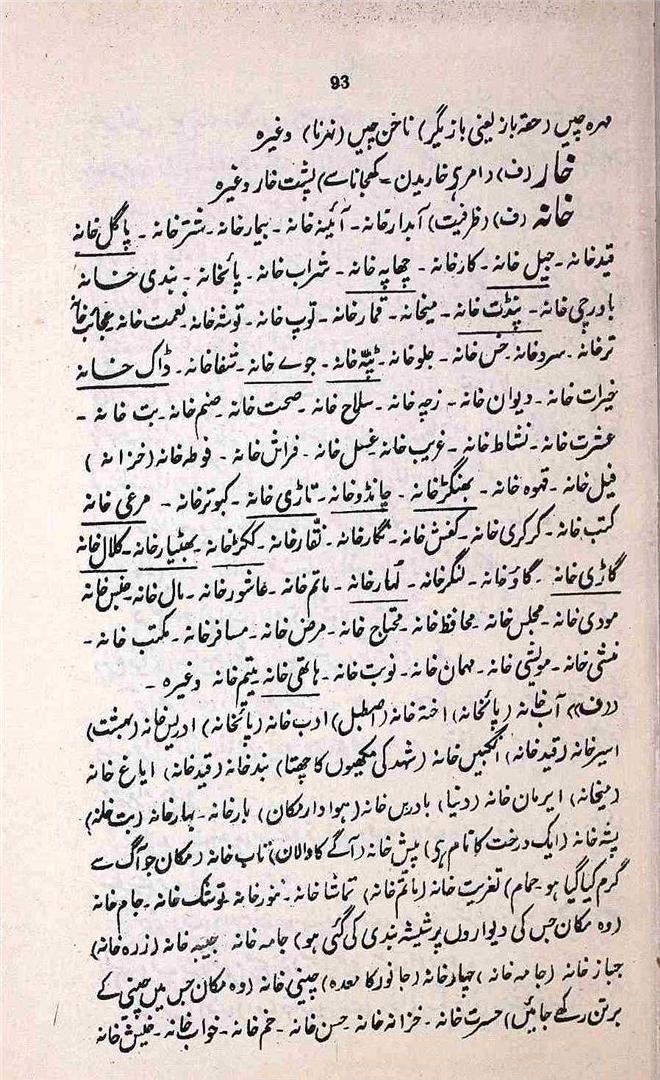 93
مہرہ چیں (حقہ باز یعنی بازیگر) ناخن چیں (نہرنا) وغیرہ
خار (ف) (امر ہے خاریدن ـ کھجانا سے) پشت خار وغیرہ
خانہ (ف) (ظرفیت) آبدارخانہ ـ آئینہ خانہ ـ بیمارخانہ ـ شترخانہ ـ پاگل خانہ
قیدخانہ ـ جیل خانہ ـ کارخانہ ـ چھاپہ خانہ ـ شراب خانہ ـ پائخانہ ـ بندی خانہ
باورچی خانہ ـ پنڈت خانہ ـ میخانہ ـ قمارخانہ ـ توپ خانہ ـ توشہ خانہ ـ نعمت خانہ ـ عجائب خانہ
ترخانہ ـ سردخانہ ـ خس خانہ ـ جلوخانہ ـ ٹپہ خانہ ـ جوے خانہ ـ شفاخانہ ـ ڈاک خانہ
خیرات خانہ ـ دیوان خانہ ـ زچہ خانہ ـ سلاح خانہ ـ صحت خانہ ـ صنم خانہ ـ بت خانہ ـ
عشرت خانہ ـ نشاط خانہ ـ غریب خانہ ـ غسل خانہ ـ فراش خانہ ـ فوطہ خانہ (خزانہ)
فیل خانہ ـ قہوہ خانہ ـ بھنگڑخانہ ـ چانڈوخانہ ـ تاڑی خانہ ـ کبوترخانہ ـ مرغی خانہ
کتب خانہ ـ کرکری خانہ ـ کفش خانہ ـ نگارخانہ ـ نقارخانہ ـ ککڑخانہ ـ بھٹیارخانہ ـ کلال خانہ
گاڑی خانہ ـ گاؤخانہ ـ لنگرخانہ ـ ماتم خانہ ـ عاشورخانہ ـ مال خانہ ـ
مودی خانہ ـ مجلس خانہ ـ محافظ خانہ ـ محتاج خانہ ـ مرض خانہ ـ مسافرخانہ ـ مکتب خانہ ـ
منشی خانہ ـ مویشی خانہ ـ مہمان خانہ ـ نوبت خانہ ـ ہاتھی خانہ یتیم خانہ وغیرہ ـ
((ف)) آب خانہ (پائخانہ) اختہ خانہ (اصطبل) ادب خانہ (پائخانہ) ادریس خانہ (بہشت)
اسیرخانہ (قیدخانہ) انگبیں خانہ (شہد کی مکھیوں کا چھتا) بندخانہ (قیدخانہ) ایاغ خانہ
(میخانہ) ایرمان خانہ (دنیا) بادریں خانہ (ہوادار مکان) بارخانہ ـ بہارخانہ (بت خانہ)
پشہ خانہ (ایک درخت کا نام ہے) پیش خانہ (آگے کا دالان) تاب خانہ (مکان جو آگ سے
گرم کیا گیا ہو ـ حمام) تعزیت خانہ (ماتم خانہ) تماشا خانہ ـ تنورخانہ ـ توشک خانہ ـ جام خانہ
(وہ مکان جس کی دیواروں پر شیشہ بندی کی گئی ہو) جامہ خانہ جیبہ خانہ (زرہ خانہ)
جہازخانہ (جامہ خانہ) چہارخانہ (جانور کا معدہ) چینی خانہ (وہ مکان جس میں چینی کے
برتن رکھے جائیں) حسرت خانہ ـ خزانہ خانہ ـ حسن خانہ ـ خم خانہ ـ خواب خانہ ـ خیش خانہ